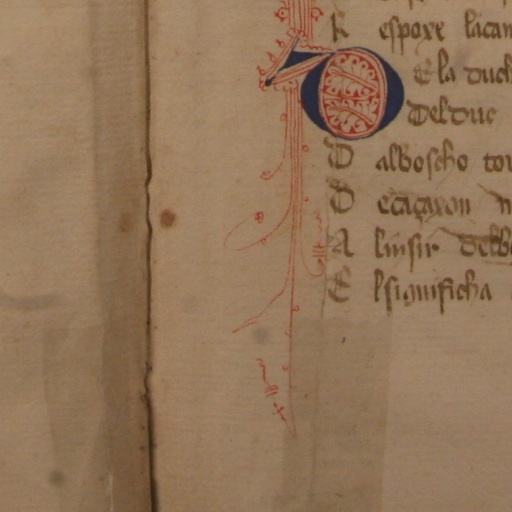 R espoxe lacan
D Ela duch
Del duc
D alboscho tor
D ecaçaxon n
A linsir delb
E lsignificha